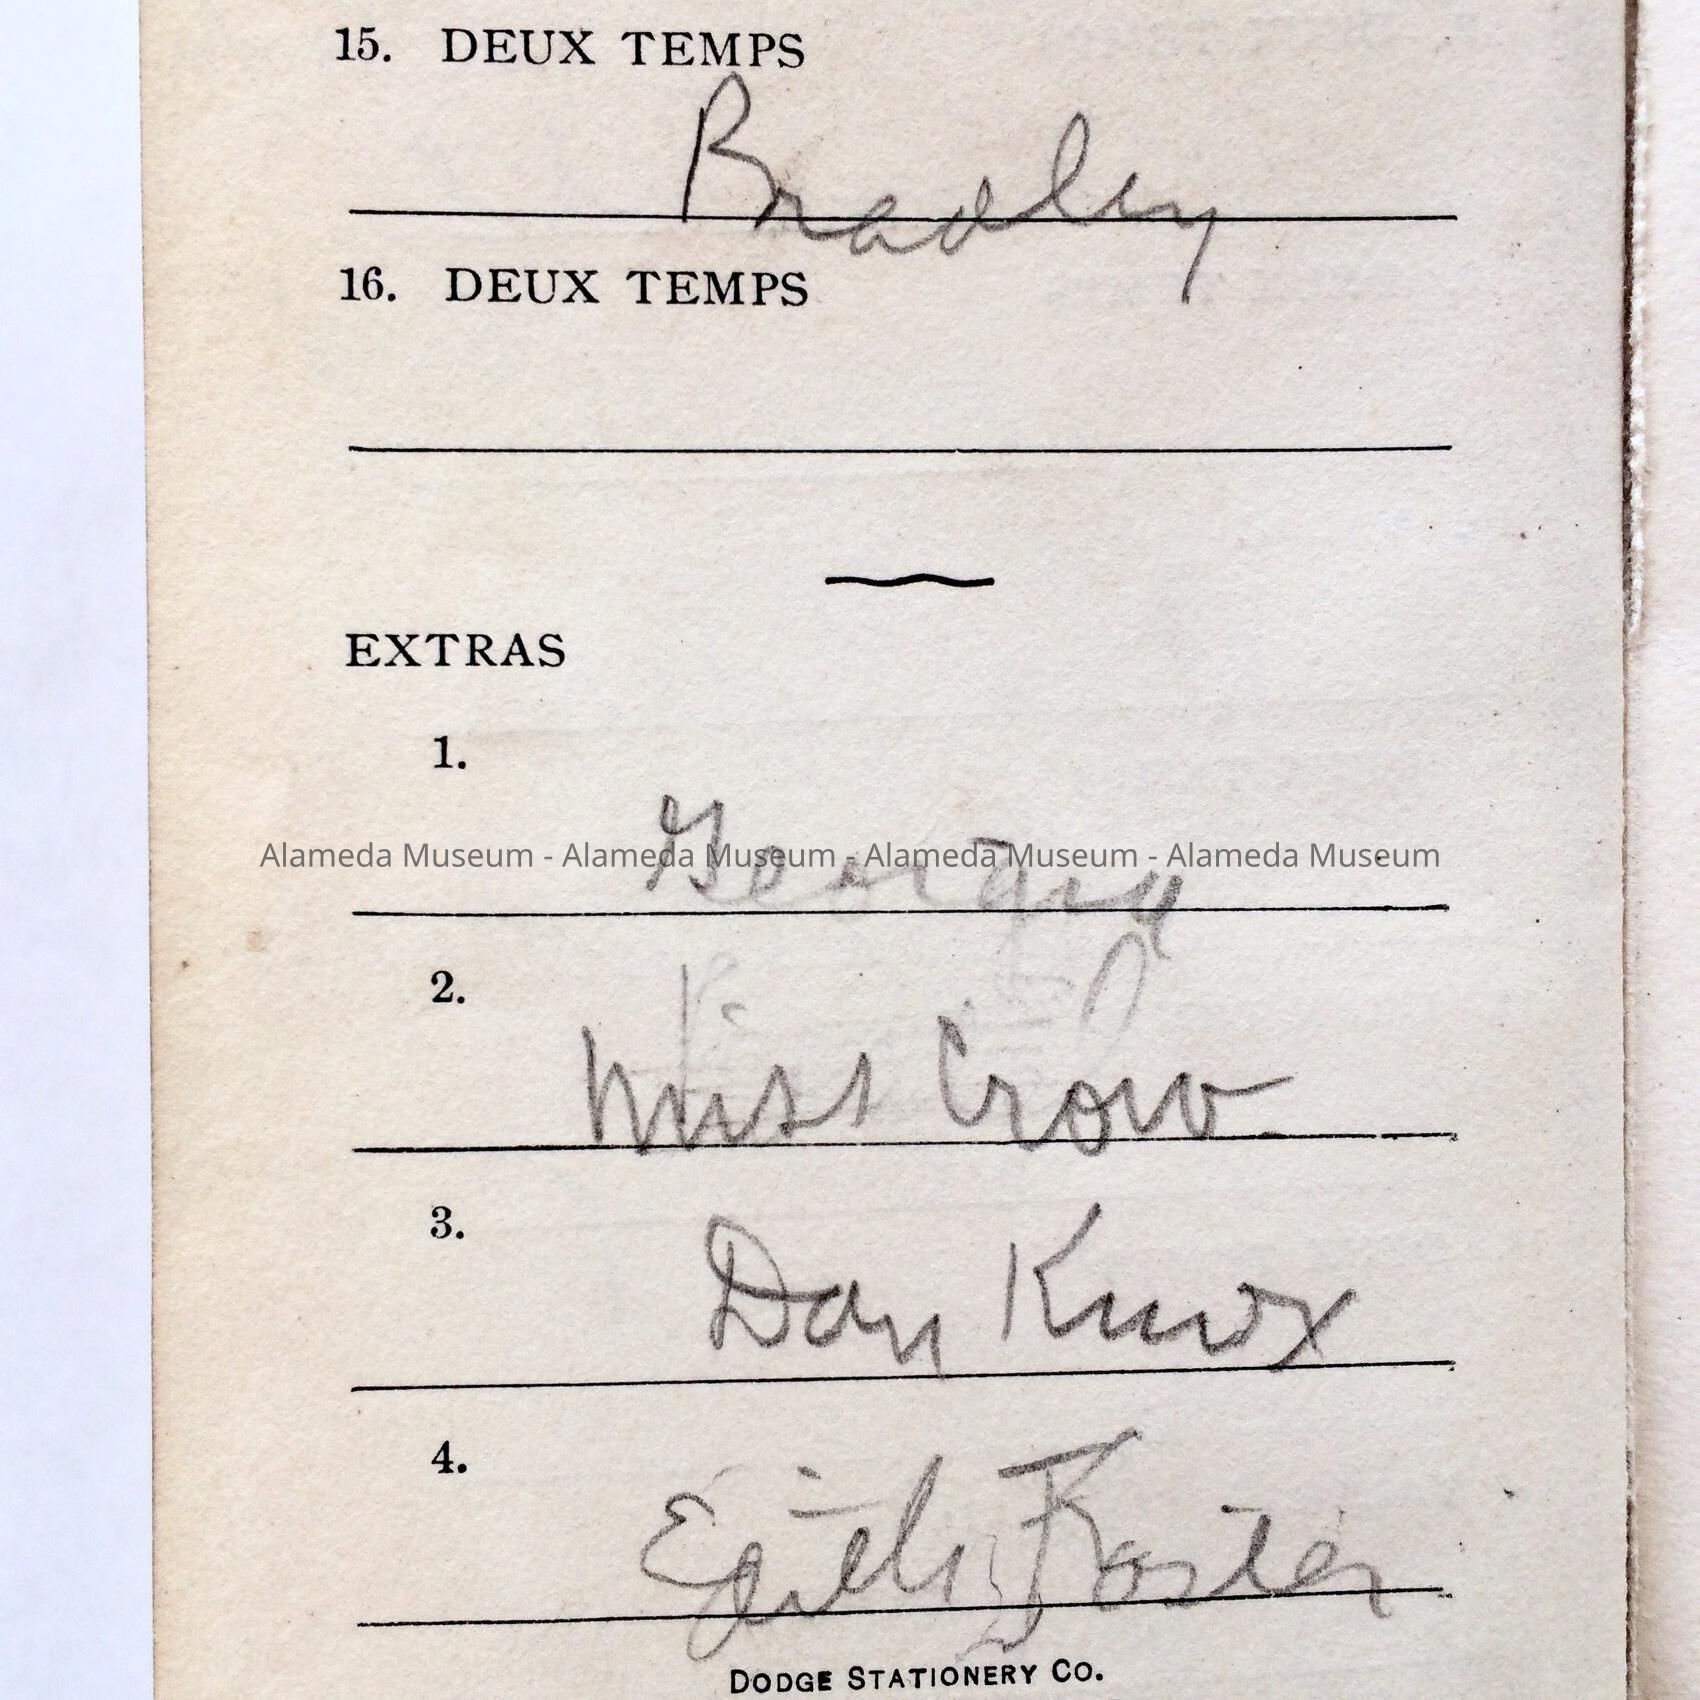 15. DEUX TEMPS
Bradley
16. DEUX TEMPS
EXTRAS
1.
Alameda Museum - Alameda Museum - Alameda Museum - Alameda Museum
2.
Miss Crow
3.
Dan Knox
4.
Edith Foster
DODGE STATIONERY CO.